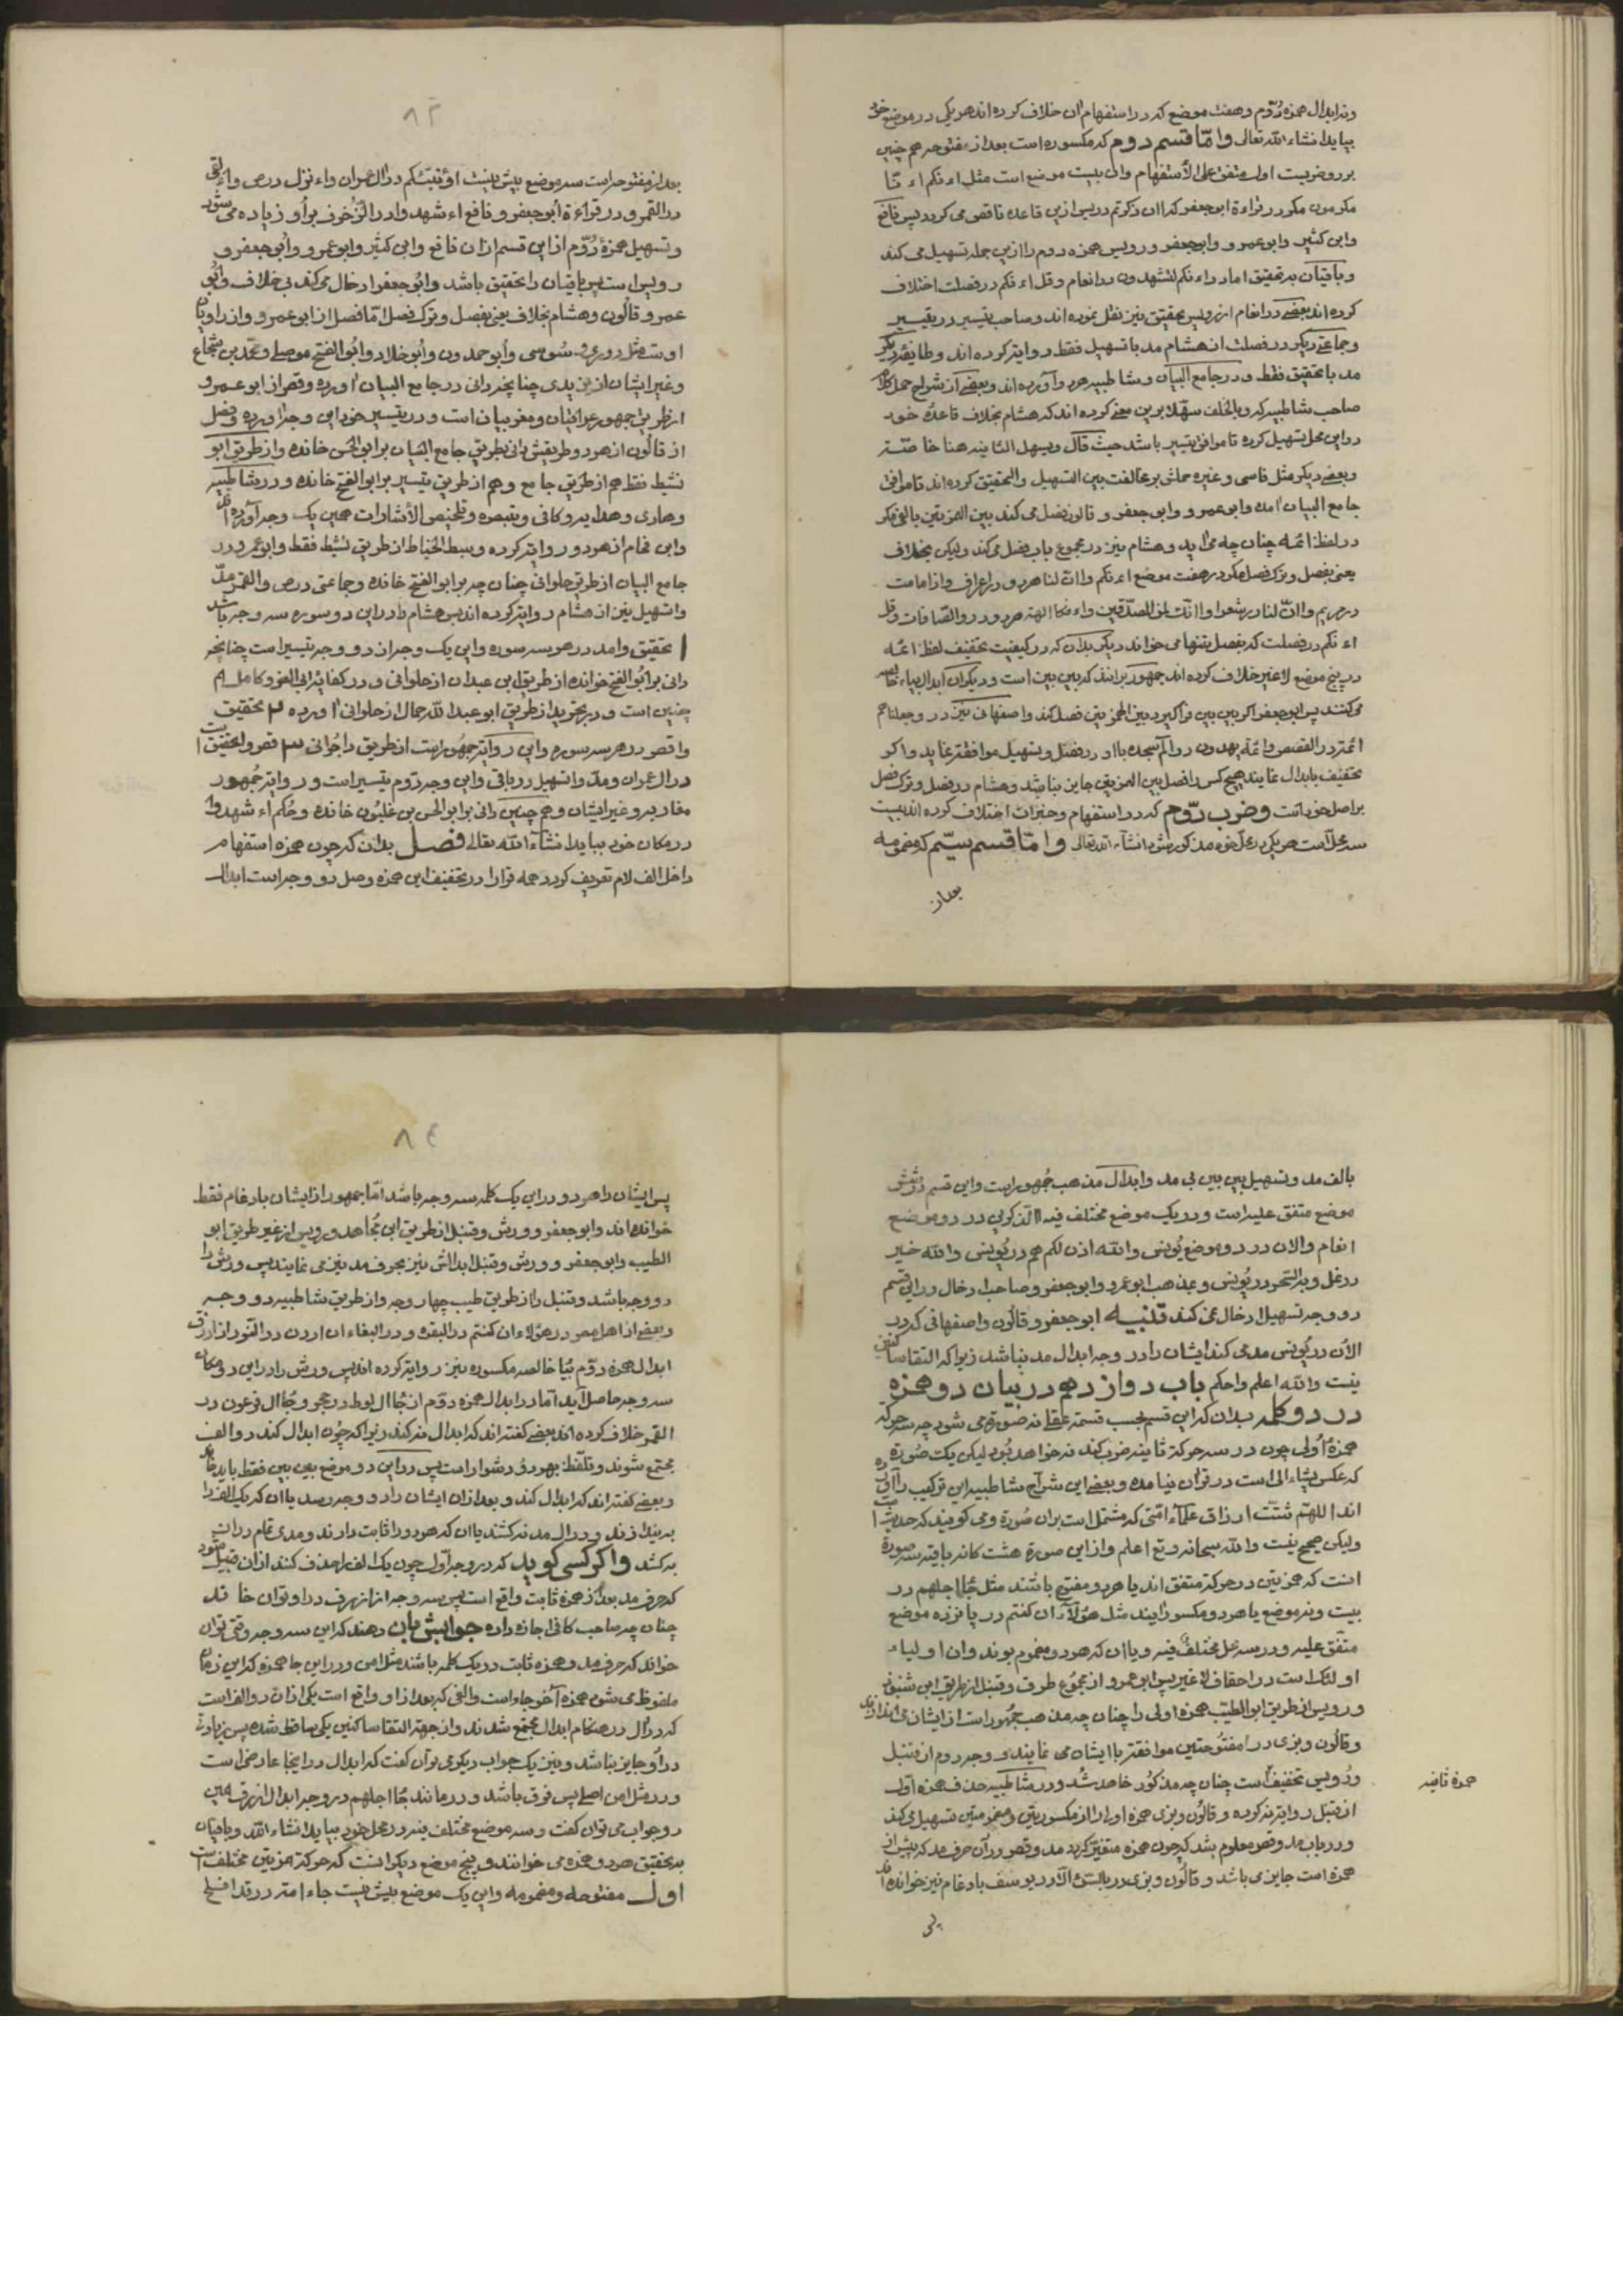 وند ابدال همزه دوم و هفت موضع که در استفهام ان خلاف کرده اند هر یکی در موضع خود
بیاید انشاء الله تعالی و امّا قسم دوم که مکسوره است بعد از مفتوحه هم چنین
بر دو ضربست اول متفق علی الأستفهام وان بیست موضع است مثل اءنکم اءنا
وابن کثیر وابو عمرو و ابو جعفر و رویس همزه دوم را ازین جمله تسهیل می کند
و باقیان به تحقیق اما در اءنکم لتشهدون در انعام و قل اءنکم در فصلت اختلاف
کرده اند بعضی در انعام از رویس تحقیق نیز نقل نموده اند و صاحب تیسیر در تیسیر
و جماعتی دیگر در فصلت از هشام مد با تسهیل فقط روایت کرده اند و طایفه دیگر
مد با تحقیق فقط و در جامع البیان و شاطبیه هر دو آورده اند و بعضی از شراح حمل کلام
صاحب شاطبیه که وبالخلف سهّلا برین معنی کرده اند که هشام بخلاف قاعدهٔ خود
درین محل تسهیل کرده تا موافق تیسیر باشد حیث قال ویسهل الثانیه هنا خاصّته
و بعضی دیگر مثل فاسی و غیره حملش بر مخالفت بین التسهیل والتحقیق کرده اند تا موافق
جامع البیان امد وابو عمرو و ابو جعفر و قالون فصل می کند بین الهمزتین بالفی مگر
در لفظ ائمه چنان چه می اید و هشام نیز در مجموع باب فصل می کند ولیکن بخلاف
یعنی بفصل و ترک فصل مگر در هفت موضع اءنکم و اانّ لنا هر دو در اعراف و اذا ما مت
در مریم و اانّ لنا در شعرا و اانک لمن المصدقین و اءفکا الهة هر دو در و الصّافات وقل
اءنکم در فصلت که بفصل تنها می خواند دیگر بدان که در کیفیت تخفیف لفظ ائمه
در پنج موضع لا غیر خلاف کرده اند جمهور برانند که بین بین است و دیگران ابدال بیاء خالصه
می کنند پس ابو جعفر اگر بین بین فراگیرد بین الهمزتین فصل کند و اصفهانی نیز در و جعلناهم
ائمة در القصص و ائمة یهدون در الم سجده با او در فصل و تسهیل موافقة نماید و اگر
تخفیف بابدال نمایند هیچ کس را فصل بین الهمزتین جایز نباشد و هشام در فصل و ترک فصل
بر اصل خود است و ضرب دوم که در استفهام و خبر ان اختلاف کرده اند بیست
سه محلّ است هر یکی در محل خود مذکور شود انشاء الله تعالی و امّا قسم سیّم که مضمومه
بعد از
۸۳
بعد از مفتوحه است سه موضع بیش نیست اؤنبئکم در ال عمران و اءنزل در ص و اءلقی
در القمر و در قراءة أبو جعفر و نافع اءشهدوا در الزّخرف بر او زیاده می شود
و تسهیل همزهٔ دوّم از این قسم از ان نافع و ابن کثیر و ابو عمرو و أبو جعفر و
رویس است پس باقیان را تحقیق باشد و ابو جعفر ادخال می کند بی خلاف و ابو
عمرو و قالون و هشام بخلاف یعنی بفصل و ترک فصل امّا فصل از ابو عمرو و از راویان
اوست مثل دوری و سوسی و أبو حمدون و أبو خلاد و أبو الفتح موصلی و محمد بن شجاع
و غیر ایشان از یزیدی چنانچه دانی در جامع البیان اورده و قصر از ابو عمرو
از طریق جمهور عراقیان و مغربیان است و در تیسیر خود این وجه را اورده و فصل
از قالون از هر دو طریقش دانی بطریق جامع البیان بر ابو الحسن خوانده و از طریق ابو
نشیط فقط هم از طریق جامع و هم از طریق تیسیر بر ابو الفتح خوانده و در شاطبیه
و هادی و هدایه و کافی و تبصره و تلخیص الأشارات همین یک وجه آورده اند
و ابن فحام از هر دو روایت کرده و سبط الخیاط از طریق نشیط فقط و ابو عمرو در
جامع البیان از طریق حلوانی چنان چه بر ابو الفتح خوانده و جماعتی در ص و القمر مدّ
و تسهیل نیز از هشام روایت کرده اند پس هشام را در این دو سوره سه وجه باشد
۱ تحقیق و امد در هر سه سوره و این یک وجه از دو وجه تیسیر است چنانچه
دانی بر أبو الفتح خوانده از طریق ابن عبدان از حلوانی و در کفایه ابی العز و کامل هم
چنین است و در تجرید از طریق ابو عبد الله جمال از حلوانی اورده ۲ تحقیق
و قصر در هر سه سوره و این روایت جمهور است از طریق داجونی ۳ قصر و تحقیق
در ال عمران و مدّ و تسهیل در باقی و این وجه دوم تیسیر است و روایت جُمهور
مغاربه و غیر ایشان و هم چنین دانی بر ابو الحسن بن غلبون خوانده و حُکم اءشهدوا
در مکان خود بیاید انشآء الله تعالی فصل بدان که چون همزه استفهام
داخل الف لام تعریف گردد همه قرا را در تخفیف این همزه وصل دو وجه است ابدال
بالف مد و تسهیل بین بین بی مد و ابدال مذهب جُهمور است و این قسم در شش
موضع متفق علیه است و در یک موضع مختلف فیه االذکرین در دو موضع
انعام و الان در دو موضع یُونس و الله اذن لکم هم در یُونس و الله خیر
در نمل و به السّحر در یُونس و بمذهب ابو عمرو و ابو جعفر و صاحب ادخال در این قسم
دو وجه تسهیل ادخال نمی کند تنبیه ابو جعفر و قالون و اصفهانی که در
الأن در یُونس مد می کند ایشان را در وجه ابدال مد نباشد زیرا که التقا ساکنین
نیست و الله اعلم و احکم باب دوازدهم در بیان دو همزه
در دو کلمه بدان که این قسم بحسب قسمة عقلی نه صورة می شود چه سه حرکة
همزهٔ اُولی چون در سه حرکة ثانیه ضرب کند نه خواهد بُود لیکن یک صُورة
که عکس یشاء الی است در قران نیامده و بعضی این شراح شاطبیه این ترکیب را آورده
اند اللهم شتت ارزاق علماء امتی که مشتمل است بران صُورة و می گویند که حدیث است
ولیکن صحیح نیست و الله سبحانه و تع اعلم و از این صورة هشت گانه باقیه سه صورة
انست که همزتین در حرکة متفق اند یا هر دو مفتوح باشند مثل جاء اجلهم در
بیست و نه موضع یا هر دو مکسور ایند مثل هؤلآء ان کنتم در پانزده موضع
متّفق علیه و در سه محل مختلف فیه و یا ان که هر دو مضموم بوند و ان اولیاء
اولئک است در احقاف لا غیر پس ابو عمرو از مجمُوع طرف و قنبل از طریق ابن شنبوذ
و رویس از طریق ابو الطیّب همزه اولی را چنان چه مذهب جمُهور است از ایشان می اندازند
و قالُون و بزی در امفتُوحتین موافقة با ایشان می نمایند و وجه دوم از قنبل
و رُویس تخفیف است چنان چه مذکُور خاهد شُد و در شاطبیه حذف همزه اوّل
همزة ثانیه
از قنبل روایت نه کرده و قالُون و بزی همزه اولی را از مکسورتین و مضمومتین تسهیل می کند
و در باب مد و قصر معلوم شد که چون همزه متغیر گردد مد و قصر در آن حرف مد که پیش از
همزه است جایز می باشد و قالُون و بزی در بالسّوء الّا در یوسف بادغام نیز خوانده اند
پس
۸٤
پس ایشان را هر دو در این یک کلمه سه وجه باشد امّا جمهور از ایشان بادغام فقط
خوانده اند و ابو جعفر و ورش و قنبل از طریق ابن مُجاهد و رویس از غیر طریق ابو
الطیب و ابو جعفر و ورش و قنبل ابدالش نیز بحرف مد نیز می نمایند پس ورش را
دو وجه باشد و قنبل را از طریق طیب چهار وجه و از طریق شاطبیه دو وجه
و بعضی از اهل مصر در هؤلاء ان کنتم در البقره و در البغاء ان اردن در النّور از ازرق
ابدال همزه دوّم بیا خالصه مکسوره نیز روایت کرده اند پس ورش را در این دو مکان
سه وجه حاصل آید امّا در ابدال همزه دوّم از جاء ال لوط در حجر و جاء ال فرعون در
القمر خلاف کرده اند بعضی گفته اند که ابدال نه کند زیرا که چُون ابدال کند دو الف
مجتمع شوند و تلفّظ بهر دو دشوار است پس در این دو موضع بین بین فقط باید خاند
و بعضی گفته اند که ابدال کند و بعد از ان ایشان را دو وجه رسد یا ان که یک الف را
به بیندازند و در ال مد نه کشند یا ان که هر دو را ثابت دارند و مدی تمام دران
به کشد و اگر کسی گوید که در وجه اوّل چون یک الف را حذف کنند از ان قبیل شود
که حرف مد بعد از همزه ثابت واقع است پس سه وجه از ازرق در او توان خاند
چنان چه صاحب کافی اجازه داده جوابش بان دهند که این سه وجه وقتی توان
خواند که حرف مد و همزه ثابت در یک کلمه باشند مثل امن و در این جا همزه که این زمان
ملفوظ می شود همزه آخر جاء است و الفی که بعد از او واقع است یکی از ان دو الف است
که در ال در هنگام ابدال مجتمع شدند و از جهة التقا ساکنین یکی ساقط شده پس زیادتی
در او جایز نباشد و نیز یک جواب دیگر می توان گفت که ابدال در اینجا عارضی است
و در مثل امن اصلی پس فرق باشد و در مانند جاء اجلهم در وجه ابدال ازرق همین
دو جواب می توان گفت و سه موضع مختلف فیه در محل خود بیاید انشاء الله و باقیان
به تحقیق هر دو همزه می خوانند و پنج موضع دیگر انست که حرکة همزتین مختلف است
اول مفتوحه و مضمومه و این یک موضع بیش نیست جاء امة در قد افلح